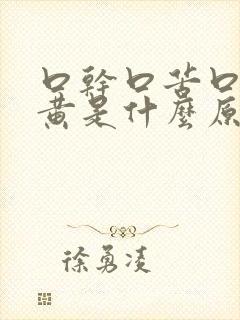 口幹口苦口
黃是什麼原
徐勇凌